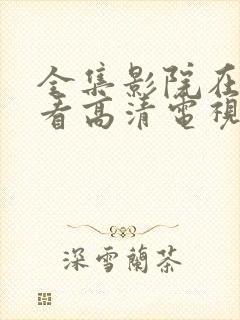 全集影院在
看高清電視
深雪蘭茶